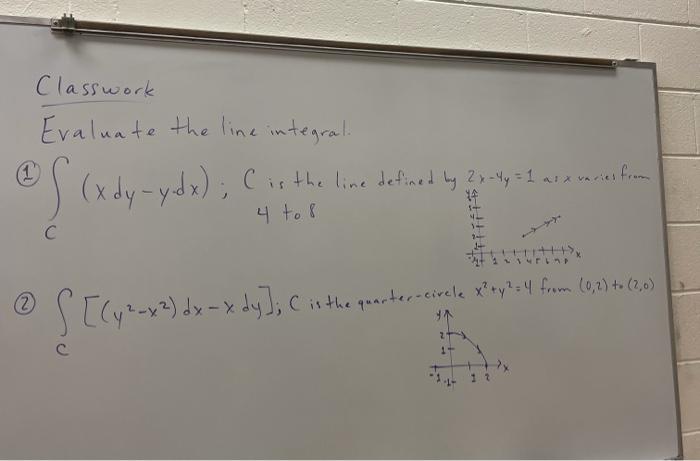 Classwork
Evaluate the line integral.
① ∫_C (x dy - y dx); C is the line defined by 2x-4y=1 as x varies from
4 to 8
② ∫_C [(y²-x²) dx - x dy]; C is the quarter-circle x²+y²=4 from (0,2) to (2,0)
y
2
1
x
-1 -1 1 2